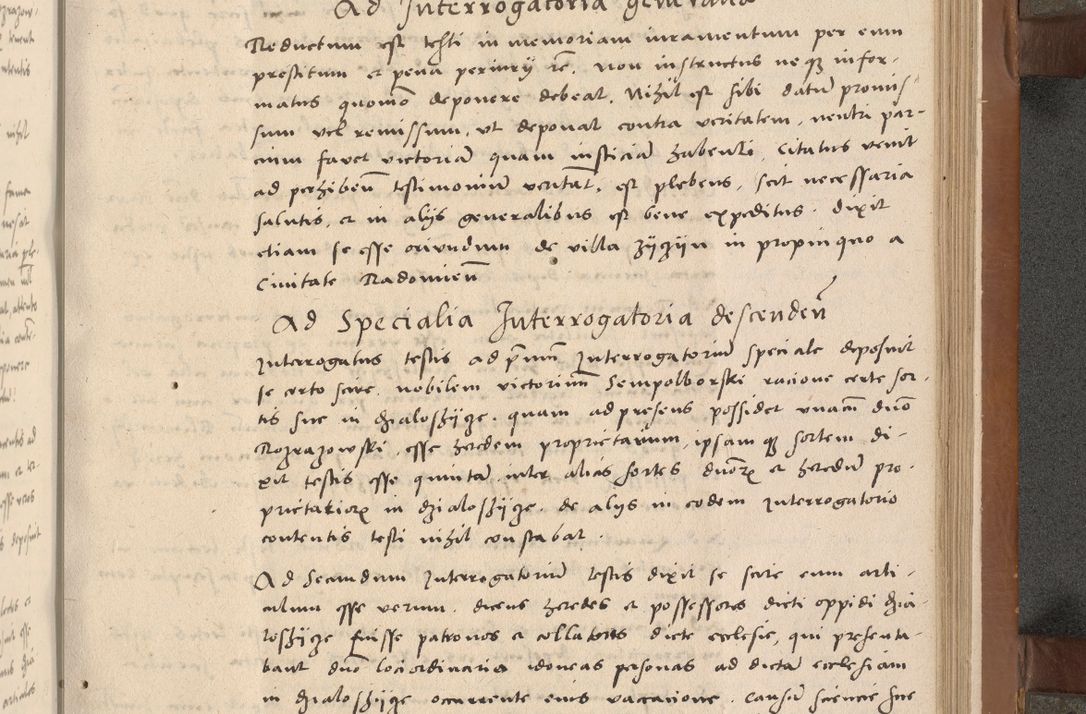 Ad Interrogatoria generalia
Reductum est testi in memoriam iuramentum per eum
prestitum et pena periurij rc. Non instructus neqz infor-
matus quomo deponere debeat. Nihil est sibi datu promis
sum vel remissum, ut deponat contra veritatem, neutri par-
cium favet victoria quam iusticia habenti. Citatus venit
ad perhiben testimoniu veritat, est plebeus, scit necessaria
salutis, et in alijs generalibus est bene expeditus. dixit
etiam se esse oriundum de villa in propinquo a
Civitate Radomien
Ad Specialia Interrogatoria descenden
Interrogatus testis ad prmum Interrogatoriu speciale deposuit
se certo scire, nobilem victorinum Sempolborski racione certe sor-
tis sue in quam ad presens possidet unacu duo
esse heredem proprietarium, ipsam qz sortem di-
xit testis esse quinta inter alias sortes duorz et heredu pro-
prietariorz in de alijs in eodem Interrogatorio
contentis testi nihil constabat.
Ad Secundum Interrogatoriu testis dixit se scire eum arti-
culum esse verum. dicens heredes et possessores dicti oppidi
fuisse patronos et collatores dicte ecclesie, qui presenta-
bant duo loci ordinario idoneas personas ad dicta ecclesiam
in occurrente eius vaccacione. Causa sciencie sue